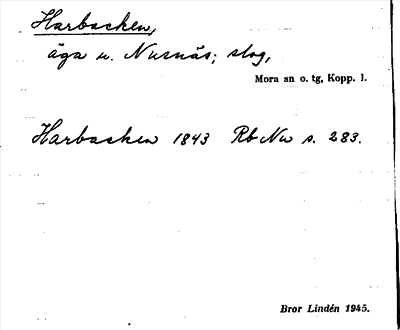 Harbacken,
äga u. Nusnäs; skog,
Mora sn o. tg, Kopp. l.
Harbacken 1843 Rb Nu s. 283.
Bror Lindén 1945.